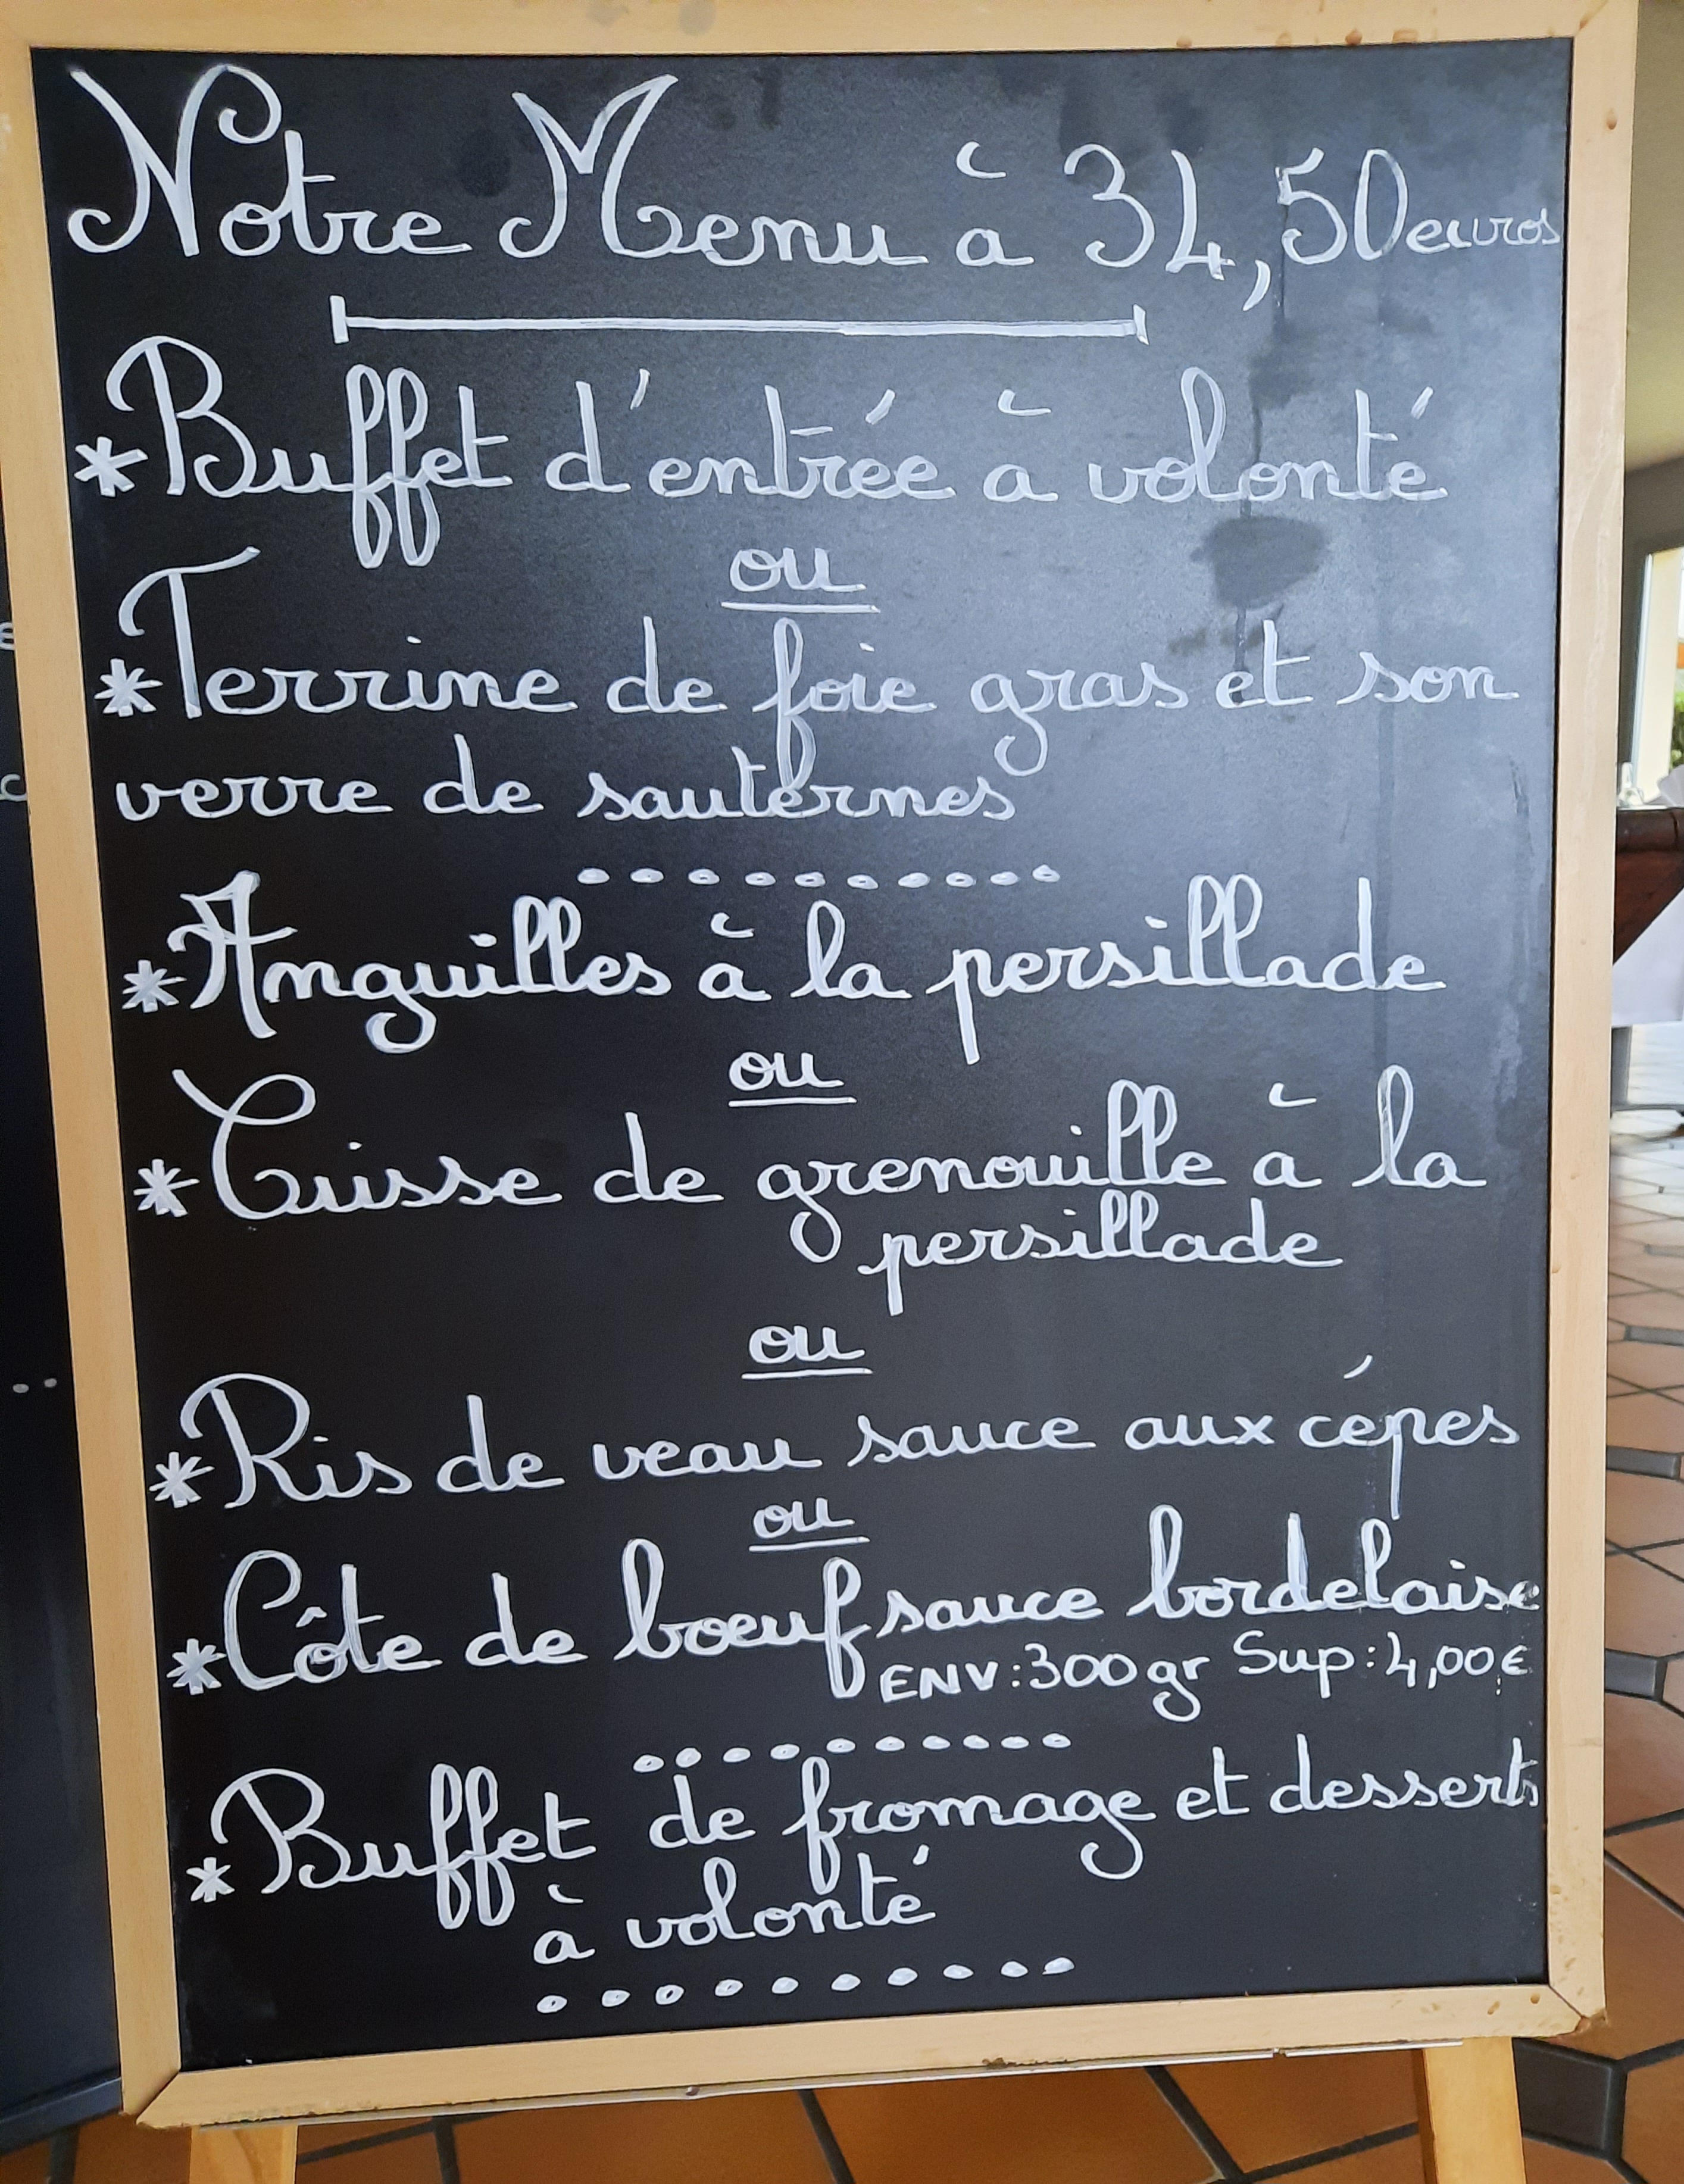 Notre Menu à 34,50euros
*Buffet d'entrée à volonté
ou
*Terrine de foie gras et son
verre de sauternes
..........
*Anguilles à la persillade
ou
*Cuisse de grenouille à la
persillade
ou
*Ris de veau sauce aux cépes
ou
*Côte de bœuf sauce bordelaise
ENV:300gr Sup:4,00€
..........
*Buffet de fromage et desserts
à volonté
..........